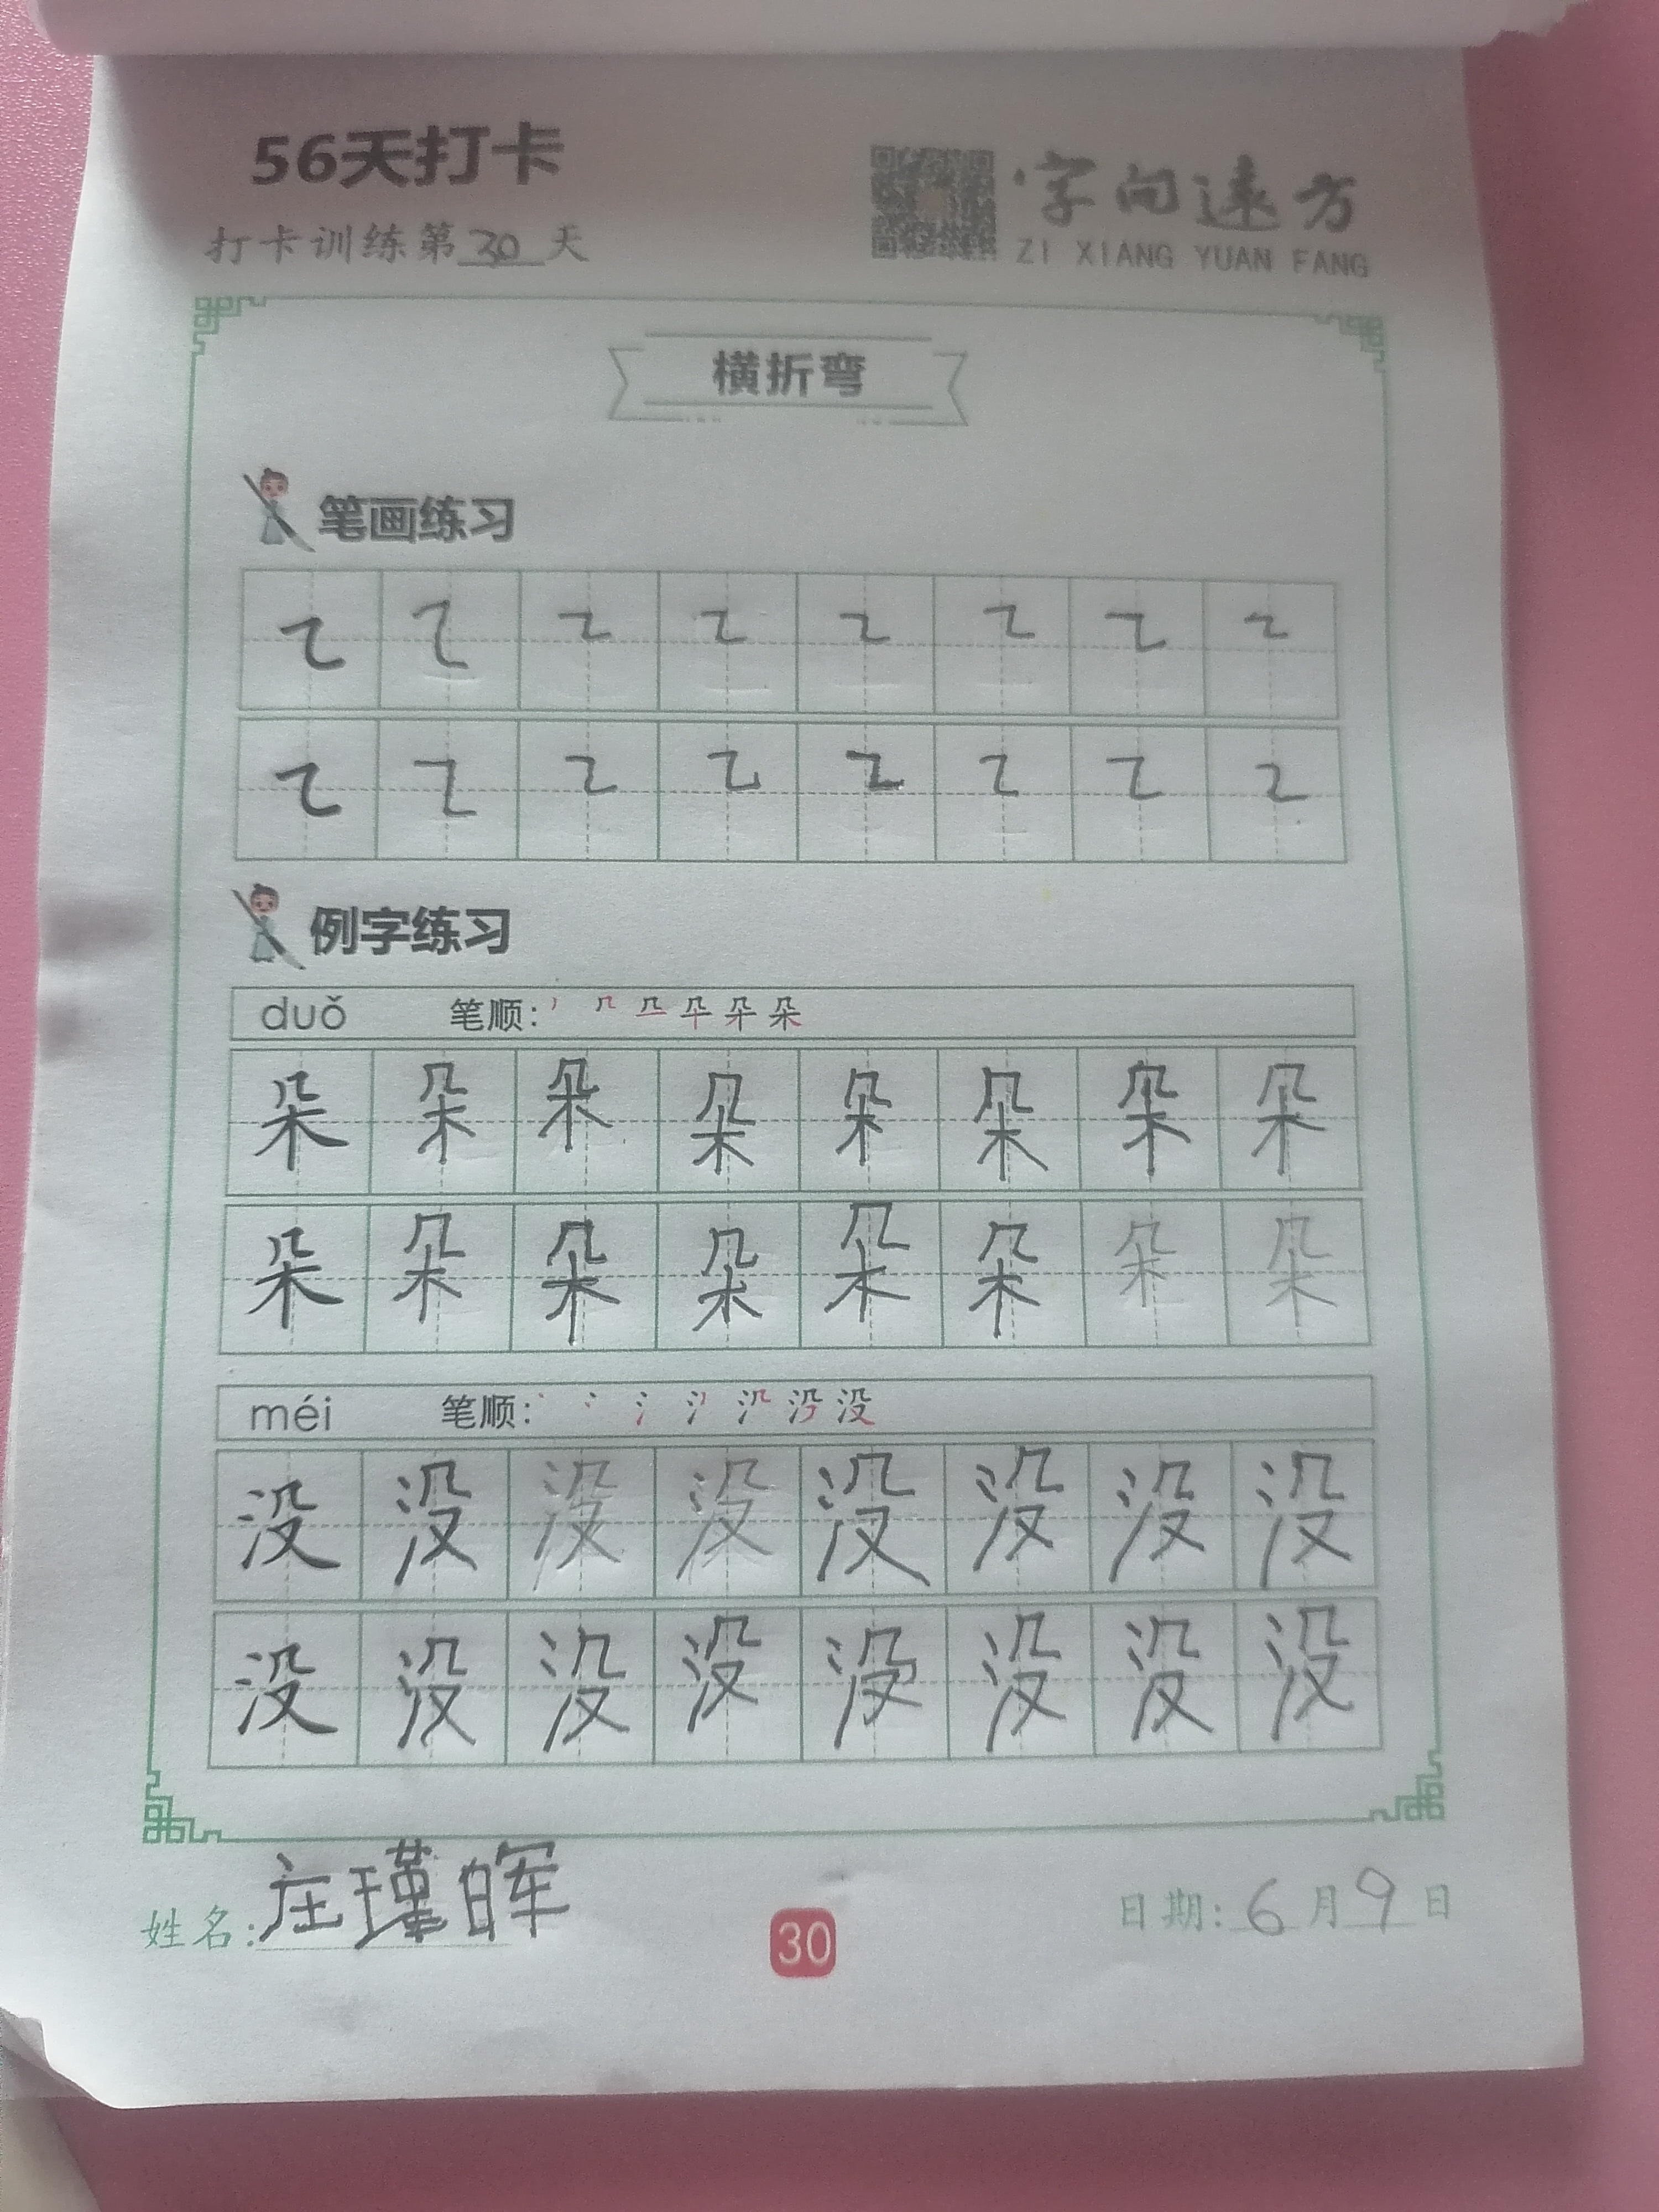 56天打卡
打卡训练第30天
字向远方
ZI XIANG YUAN FANG
横折弯
笔画练习
例字练习
duǒ 笔顺:
朵 朵 朵 朵 朵 朵 朵 朵
朵 朵 朵 朵 朵 朵 朵 朵
méi 笔顺:
没 没 没 没 没 没 没 没
没 没 没 没 没 没 没 没
姓名:庄瑾晖
30
日期:6月9日